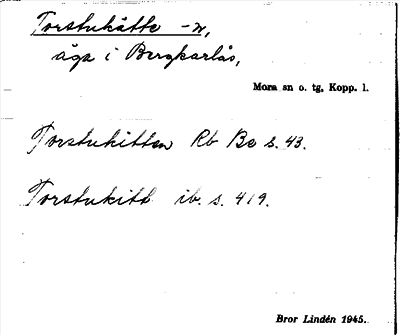 Torstukätte -n,
äga i Bergkarlås,
Mora sn o. tg, Kopp. l.
Torstukitten Rb Be s. 43.
Torstukitt ib. s. 419.
Bror Lindén 1945.